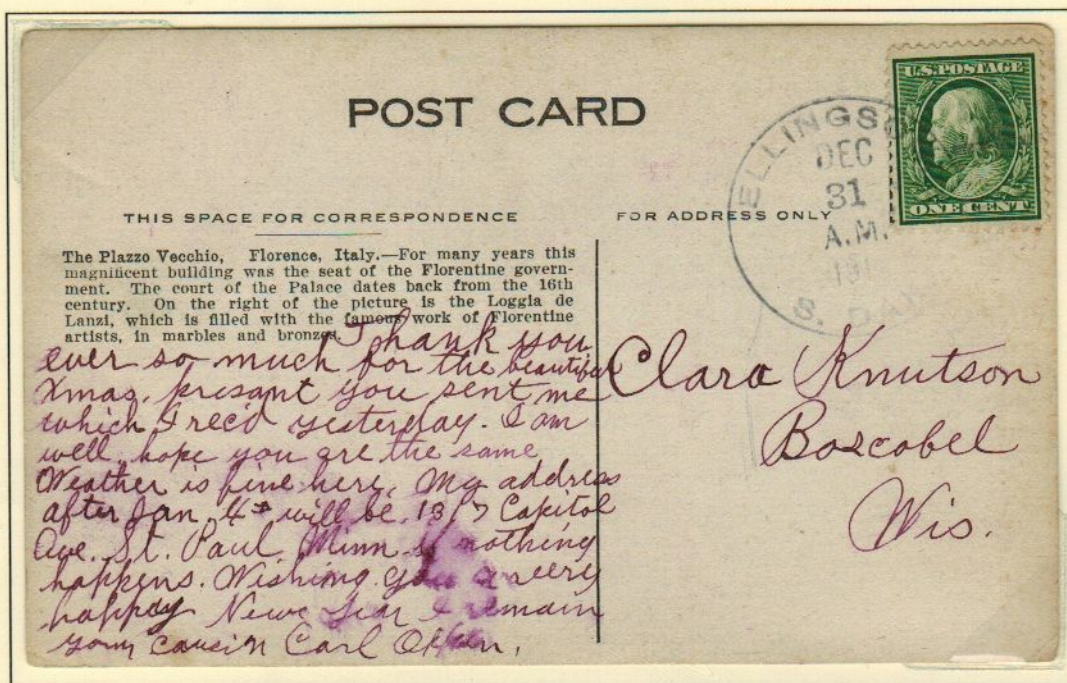 POST CARD
U.S. POSTAGE
ONE CENT
ELLINGS
DEC
31
A.M.
191
S. DAK
THIS SPACE FOR CORRESPONDENCE
FOR ADDRESS ONLY
The Plazzo Vecchio, Florence, Italy.—For many years this
magnificent building was the seat of the Florentine govern-
ment. The court of the Palace dates back from the 16th
century. On the right of the picture is the Loggia de
Lanzi, which is filled with the famous work of Florentine
artists, in marbles and bronzes.
Thank you
ever so much for the beautiful
Xmas. present you sent me
which I rec'd yesterday. I am
well, hope you are the same
Weather is fine here. My address
after Jan. 4th will be 1317 Capitol
Ave. St. Paul, Minn. if nothing
happens. Wishing you a very
happy New Year I remain
your cousin Carl
Clara Knutson
Boscobel
Wis.